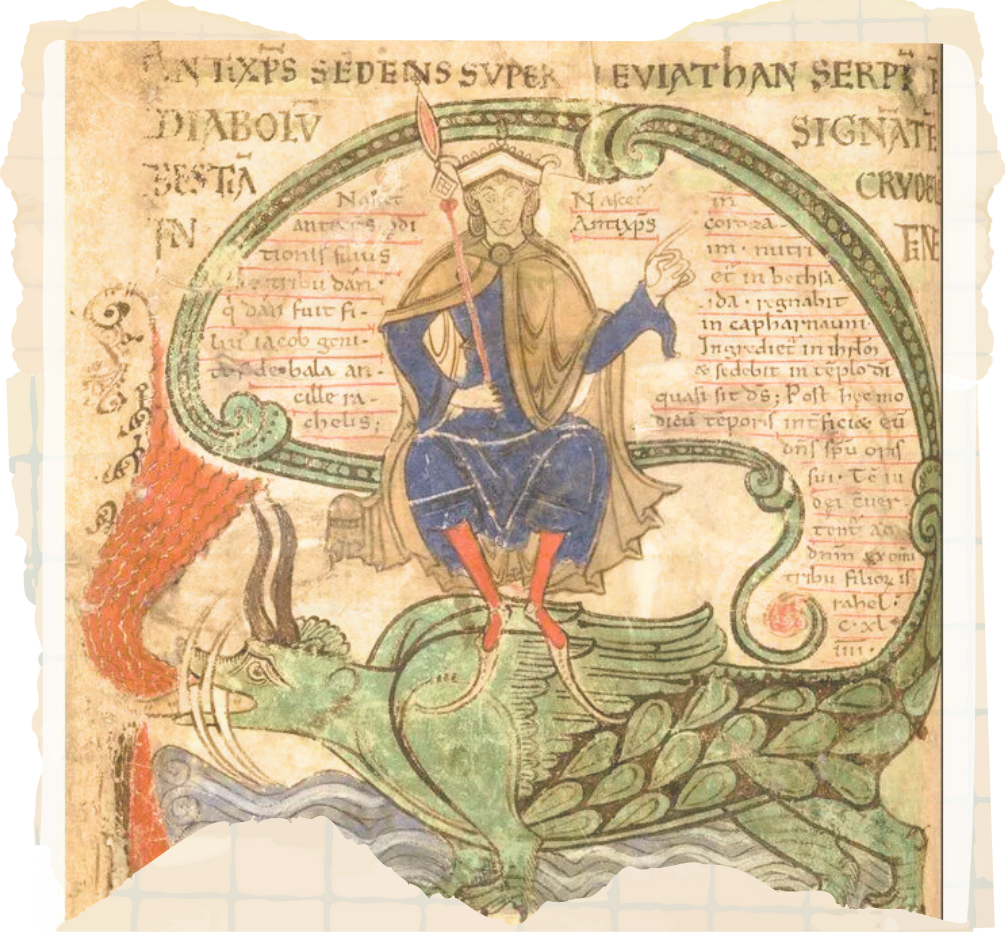 ANTIXP̄S SEDENS SVPER LEVIATHAN SERP
DIABOLV̄ SIGNATĒ
BESTIĀ CRVDEL
IN FINE
Nascet
antexp̄s ꝑdi
tionis filius
de tribu dan·
q̇ dan fuit fi-
liꝰ iacob geni-
tus de bala an-
cille ra-
chelis;
Nascet̃
Antixp̄s
in
coroza-
im· nutri
et̃ in bethsa-
ida· regnabit
in capharnaum·
Ingrediet̃ in ihrlm̄
& sedebit in tēplo d̄i
quasi sit d̄s; Post hęc mo
dicū tēporis int̃ficiet eū
dn̄s sp̄u oris
sui· Tc̄ iu
dei c̄uer-
tent̃ ad
dnm̄ ex om̄i
tribu filioꝝ isr
rahel·
c·xl
iiii·